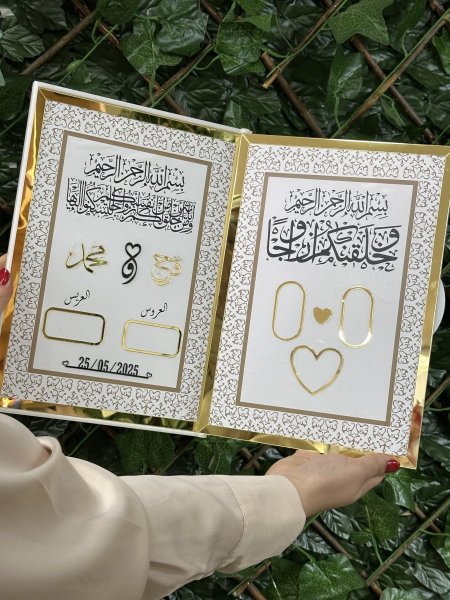 بسم الله الرحمن الرحيم
وخلقناكم أزواجا
بسم الله الرحمن الرحيم
ومن آياته أن خلق لكم من أنفسكم أزواجا لتسكنوا إليها
و محمد
العروس العريس
25/05/2025